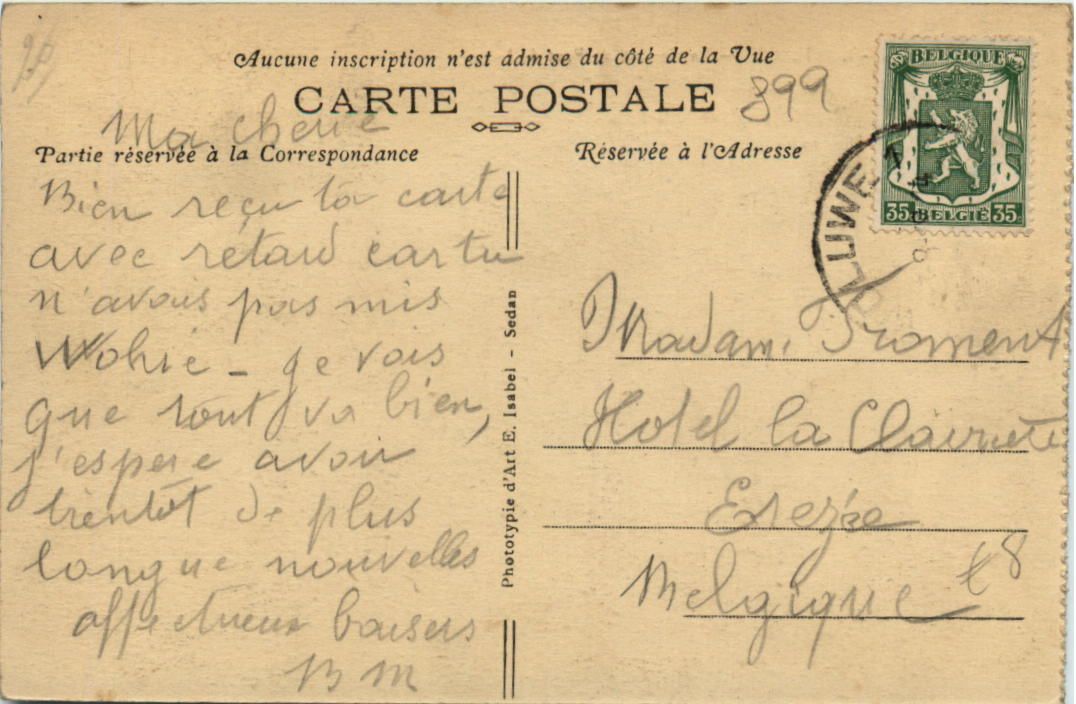 Aucune inscription n'est admise du côté de la Vue
CARTE POSTALE
899
Partie réservée à la Correspondance
Réservée à l'Adresse
BELGIQUE
35 BELGIË 35
Ma Cherie
Bien reçu ta carte
avec retard car tu
n'avais pas mis
je vois
que tout va bien,
j'espere avoir
bientôt de plus
longue nouvelles
affectueux baisers
BM
Phototypie d'Art E. Isabel - Sedan
Madame Froment
Hotel la Clairiere
Erezée
Belgique